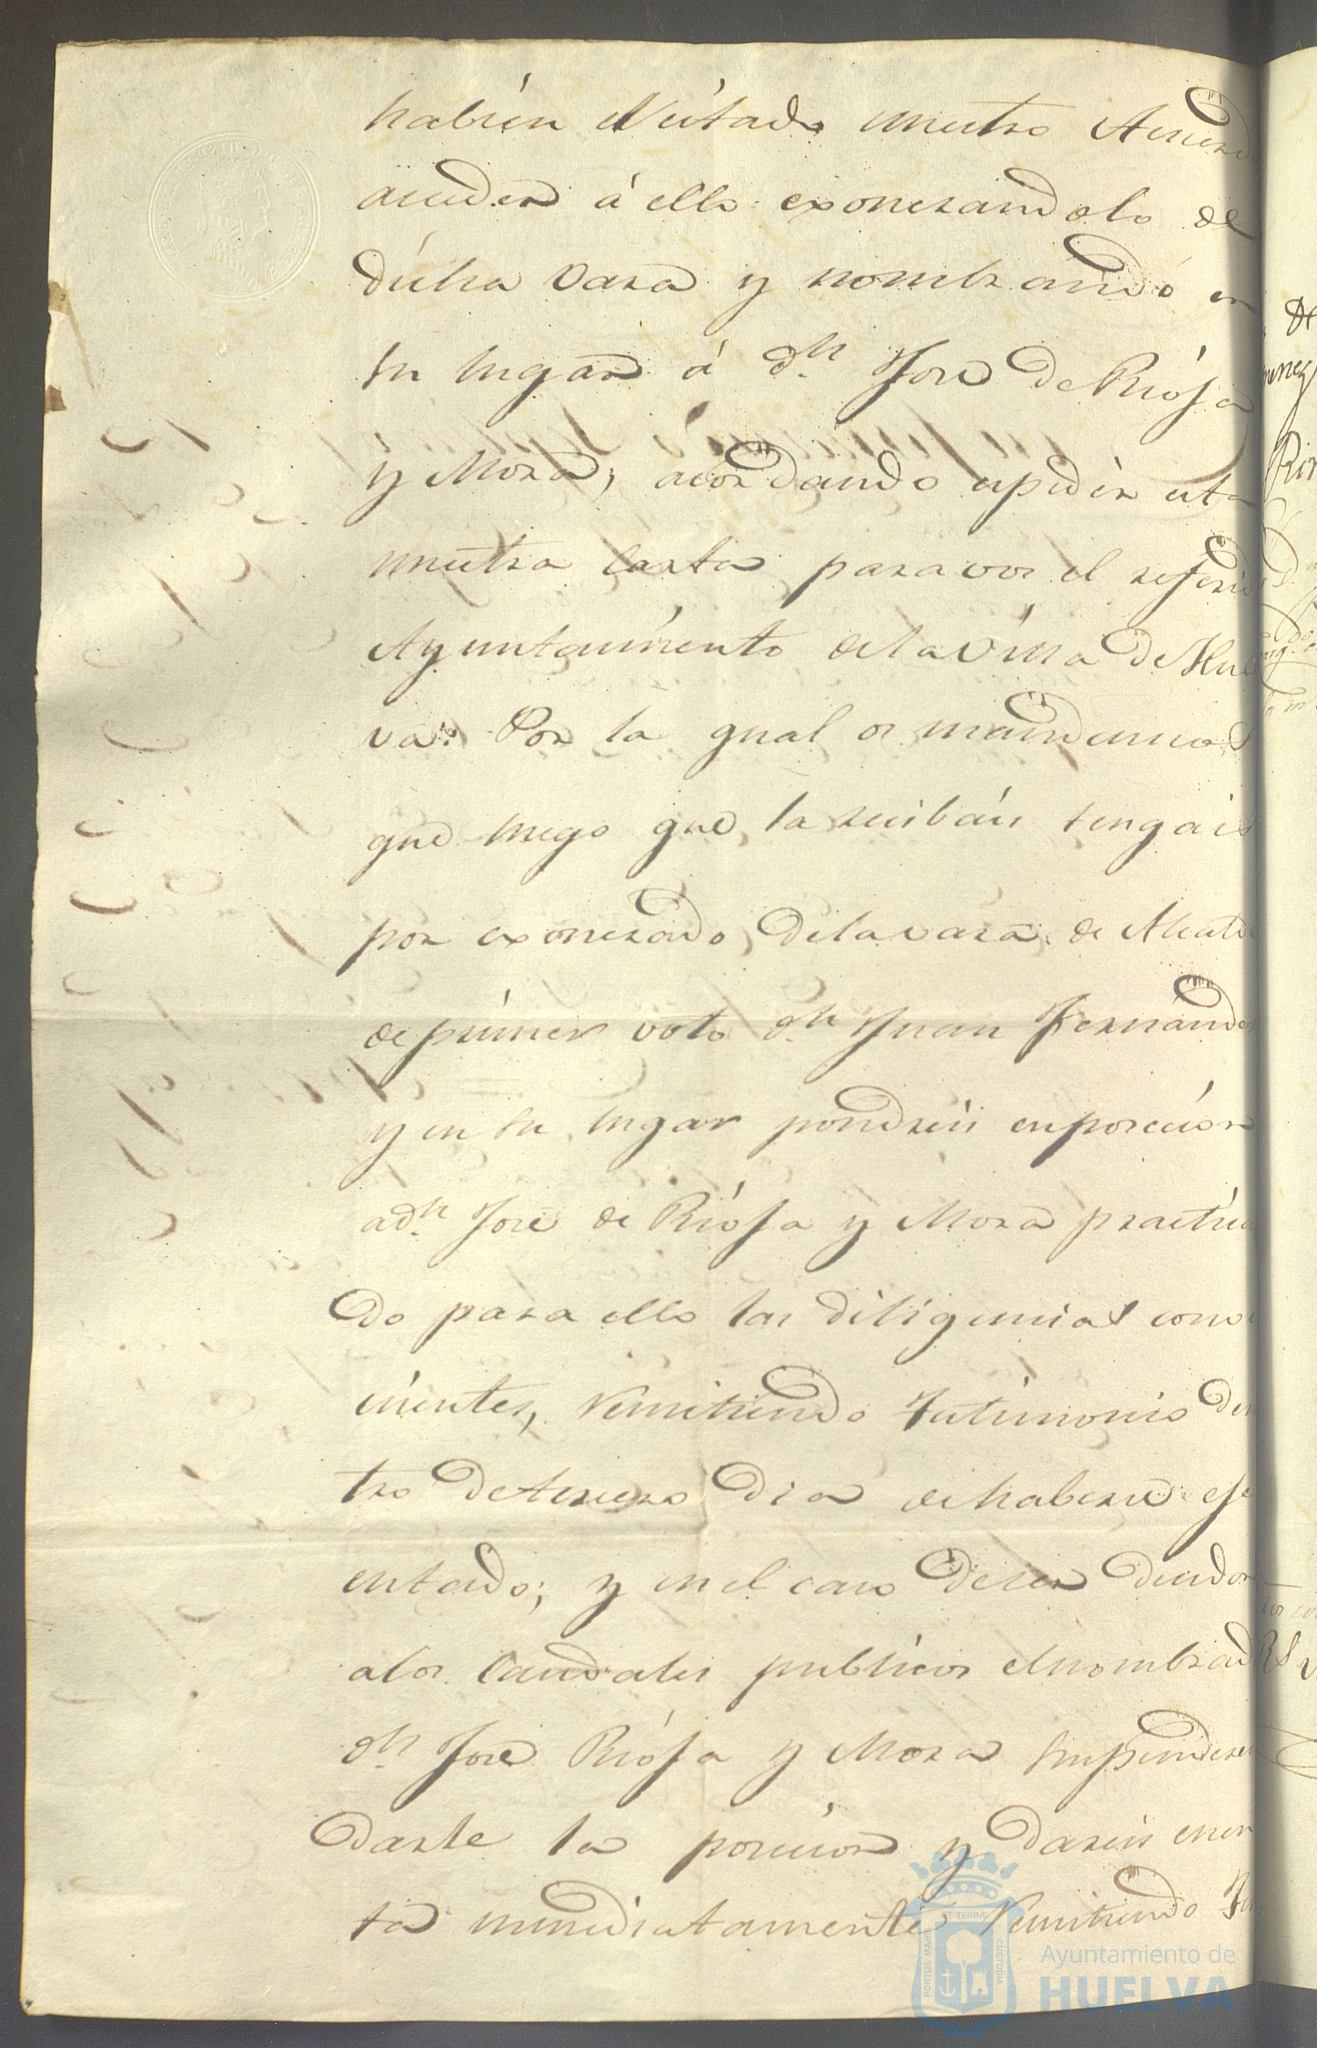 habien Nútado nuestro Acuerdo
acceder á ello exonerandolo de
dicha vara y nombrando en
su lugar á dn. José de Rioja
y Mora, acordando espedir esta
nuestra carta para vos el referido
Ayuntamiento de la Villa de Huel
va: Por la qual os mandamos
que luego que la recibáis tengais
por exonerado, de la vara, de Alcalde
de primer voto dn. Juan Fernandez
y en su lugar pondreis en posecion
a dn. José de Rioja y Mora practica
do para ello las diligencias conve
cientes, remitiendo testimonio den
tro de tercero dia de haberse eje
cutado; y en el caso de ser deudor
a los caudales publicos el nombrado
dn. José Rioja y Mora suspendereis
darle la posicion y dareis cuen
ta inmediatamente remitiendo
Ayuntamiento de
HUELVA